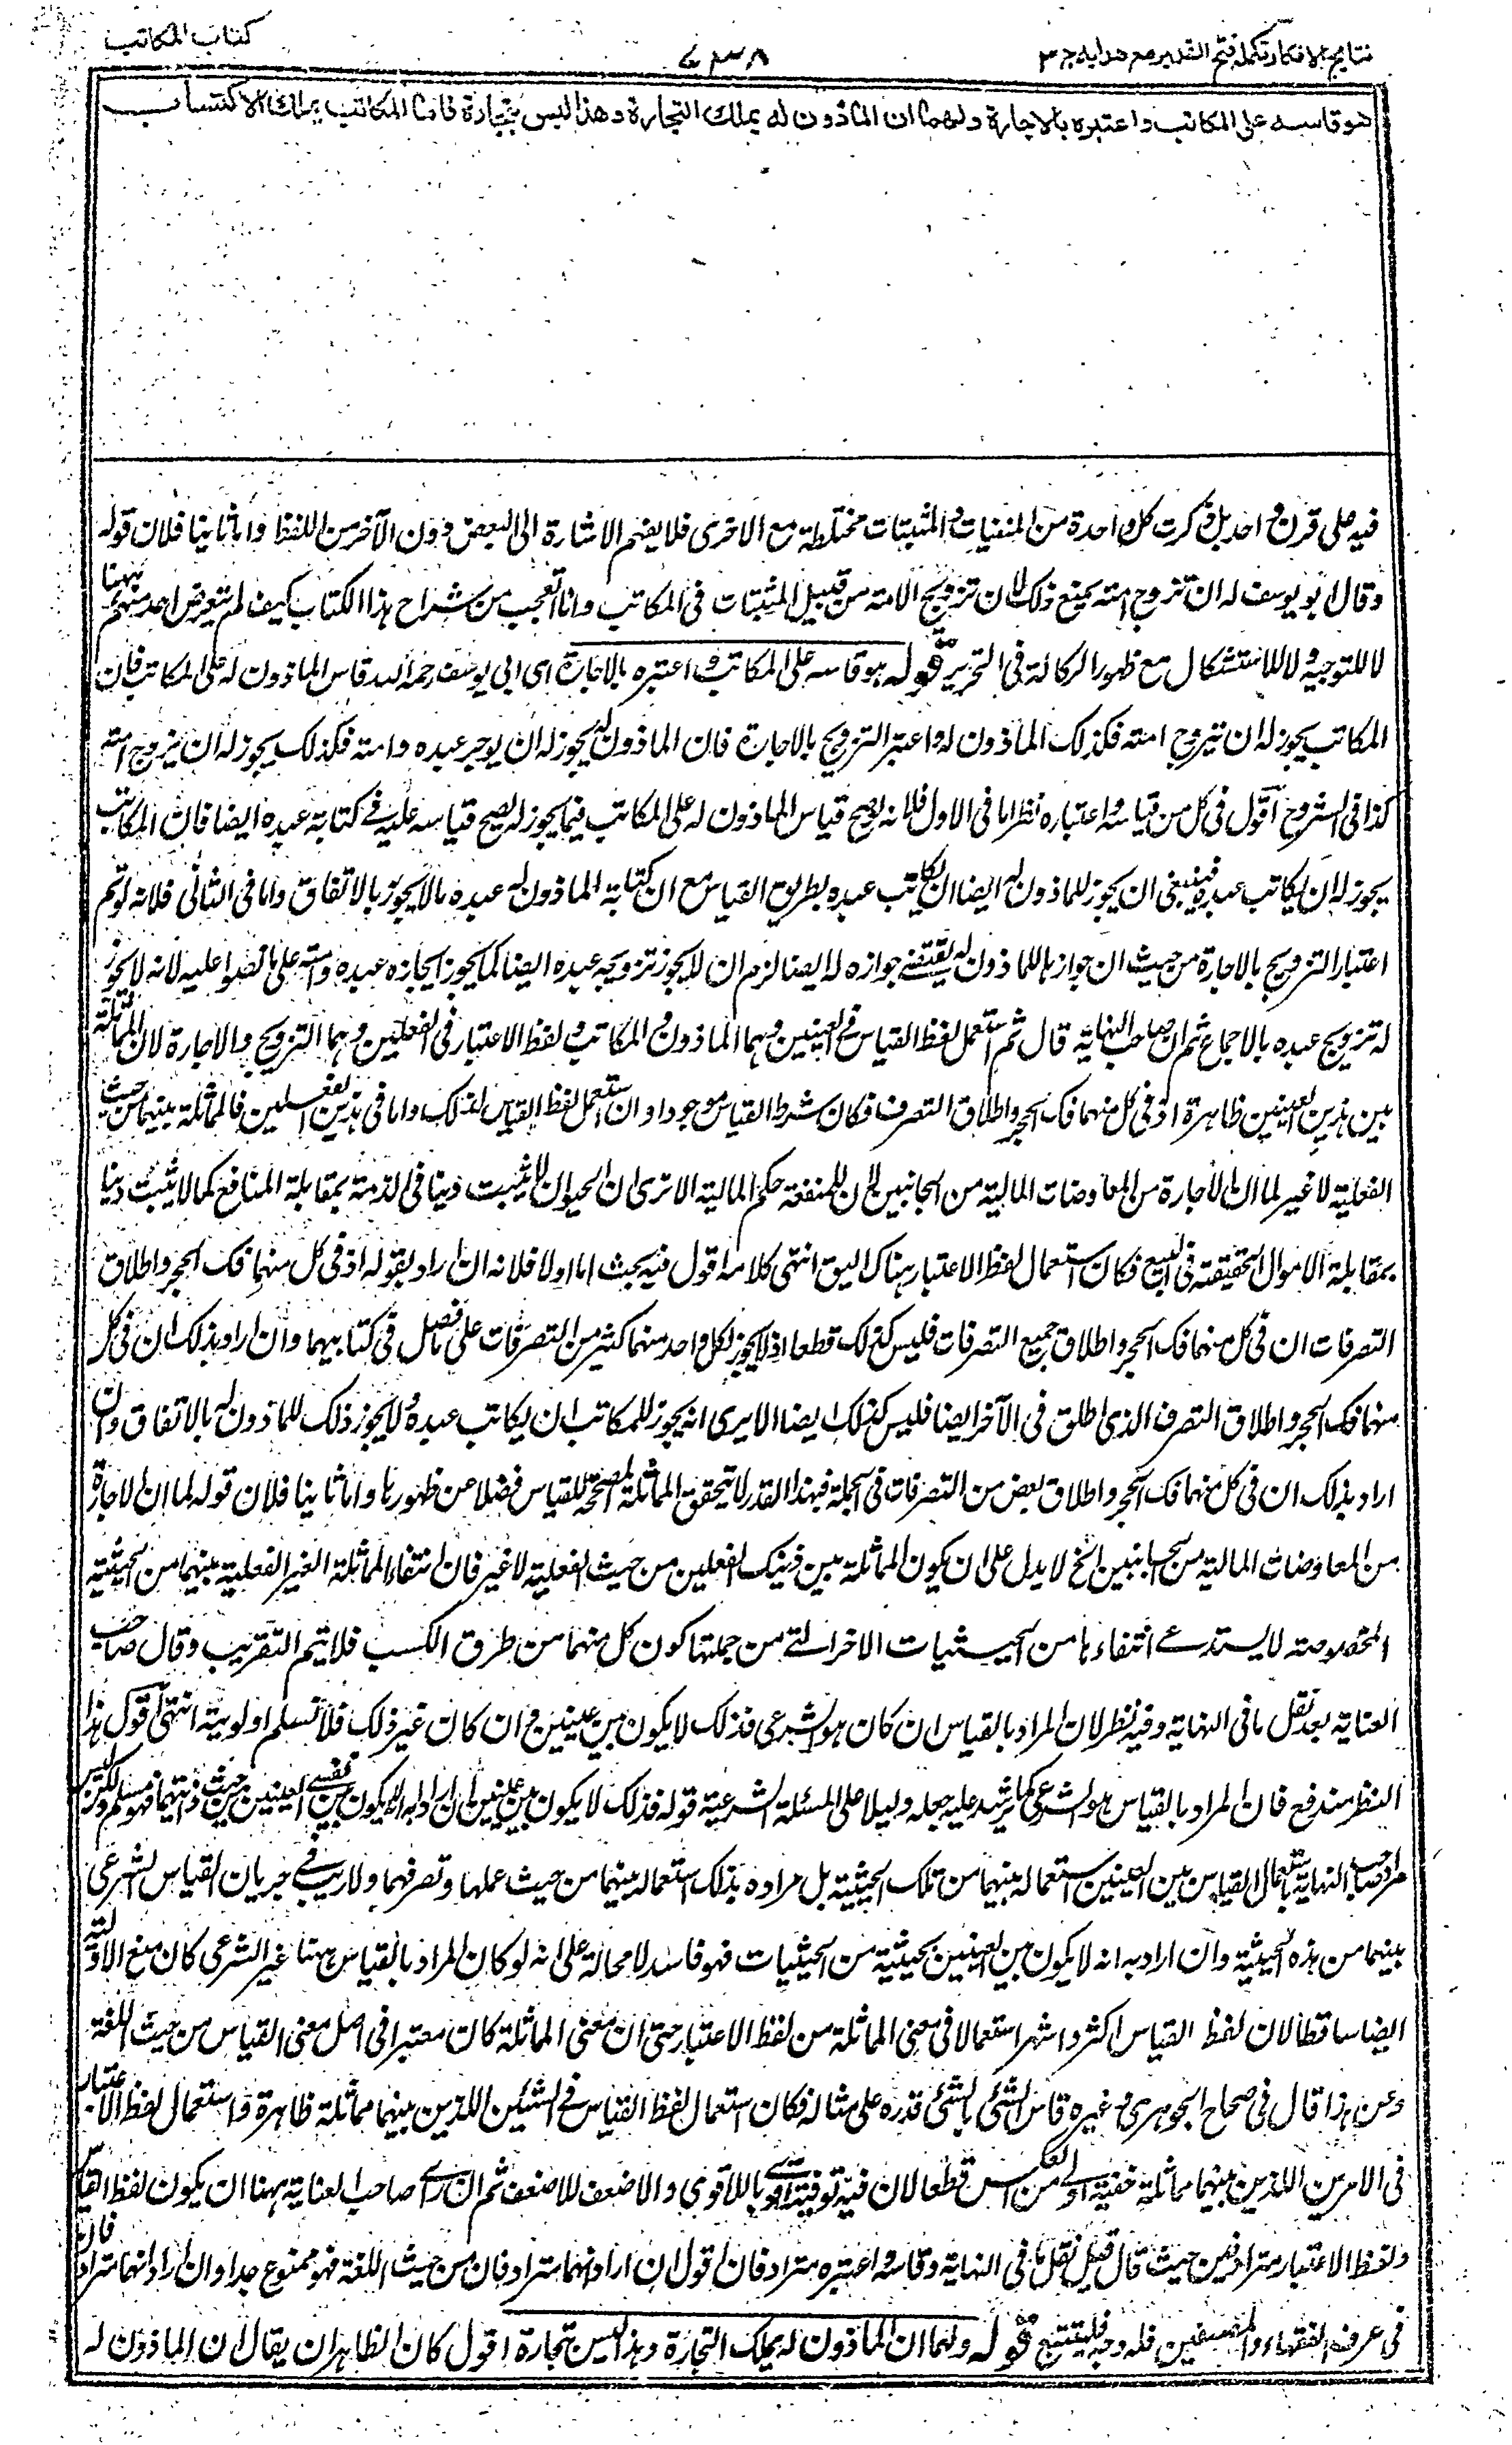 نتایج الافکار تکملہ فتح القدیر مع ھدایہ ج ۳
۷۳۸
کتاب المکاتب
ھو قاسہ علی المکاتب و اعتبرہ بالاجارة ولہما ان الماذون لہ یملک التجارة وھذا لیس بتجارة فاما المکاتب یملک الاکتساب
فیہ علی قرن واحد بل ذکرت کل واحدة من المنفیات والمثبتات مختلطة مع الاخری فلا یفہم الاشارة الی البعض دون الآخر من اللفظ واما ثانیا فلان قولہ
وقال ابو یوسف لہ ان تزوج امتہ یمنع ذلک لان تزویج الامة من قبیل المثبتات فی المکاتب وانا اتعجب من شراح ہذا الکتاب کیف لم یتعرض احد منہم ہہنا
لا للتوجیہ ولا للاستشکال مع ظہور الرکاکة فی التحریر قولہ ہو قاسہ علی المکاتب واعتبرہ بالاجارة ای ابی یوسف رحمہ اللہ قاس الماذون لہ علی المکاتب فان
المکاتب یجوز لہ ان یزوج امتہ فکذلک الماذون لہ واعتبر التزویج بالاجارة فان الماذون لہ یجوز لہ ان یوجر عبدہ وامتہ فکذلک یجوز لہ ان یزوج امتہ
کذا فی الشروح اقول فی کل من قیاسہ واعتبارہ نظر اما فی الاول فلانہ لو صح قیاس الماذون لہ علی المکاتب فیما یجوز لہ لصح قیاسہ علیہ فی کتابة عبدہ ایضا فان المکاتب
یجوز لہ ان یکاتب عبدہ فینبغی ان یجوز للماذون لہ ایضا ان یکاتب عبدہ بطریق القیاس مع ان کتابة الماذون لہ عبدہ مما لا یجوز بالاتفاق واما فی الثانی فلانہ لو تم
اعتبار التزویج بالاجارة من حیث ان جوازہا للماذون لہ یقتضے جوازہ لہ ایضا لزم ان یجوز تزویجہ عبدہ ایضا کما یجوز ایجارہ عبدہ وامتہ علی ما نصوا علیہ لانہ لا یجوز
لہ تزویج عبدہ بالاجماع ثم ان صاحب النہایة قال ثم استعمل لفظ القیاس فی العینین وہما الماذون والمکاتب ولفظ الاعتبار فی الفعلین وہما التزویج والاجارة لان المماثلة
بین ہذین العینین ظاہرة اذ فی کل منہما فک الحجر واطلاق التصرف فکان شرط القیاس موجودا وان استعمل لفظ القیاس لذلک واما فی ہذین الفعلین فالمماثلة بینہما من حیث
الفعلیة لا غیر لما ان الاجارة من المعاوضات المالیة من الجانبین لان للمنفعة حکم المالیة الا تری ان الحیوان لا یثبت دینا فی الذمة بمقابلة المنافع کما لا یثبت دینا
بمقابلة الاموال الحقیقیة فی البیع فکان استعمال لفظ الاعتبار ہناک الیق انتہی کلامہ اقول فیہ بحث اما اولا فلانہ ان اراد بقولہ اذ فی کل منہما فک الحجر واطلاق
التصرفات ان فی کل منہما فک الحجر واطلاق جمیع التصرفات فلیس کذلک قطعا اذ لا یجوز لکل واحد منہما کثیر من التصرفات علی ما فصل فی کتابیہما وان اراد بذلک ان فی کل
منہما فک الحجر واطلاق التصرف الذی اطلق فی الآخر ایضا فلیس کذلک ایضا الا یری انہ یجوز للمکاتب ان یکاتب عبدہ ولا یجوز ذلک للماذون لہ بالاتفاق وان
اراد بذلک ان فی کل منہما فک الحجر واطلاق بعض من التصرفات فی الجملة فبہذا القدر لا یتحقق المماثلة المصححة للقیاس فضلا عن ظہورہا واما ثانیا فلان قولہ لما ان الاجارة
من المعاوضات المالیة من الجانبین الخ لا یدل علی ان یکون المماثلة بین ذینک الفعلین من حیث الفعلیة لا غیر فان انتفاء المماثلة الغیر الفعلیة بینہما من الحیثیة
المخصوصة لا یستدعے انتفاءہا من الحیثیات الاخر التے من جملتہا کون کل منہما من طرق الکسب فلا یتم التقریب وقال صاحب
العنایة بعد نقل ما فی النہایة وفیہ نظر لان المراد بالقیاس ان کان ہو الشرعی فذلک لا یکون بین عینین وان کان غیر ذلک فلا نسلم اولویتہ انتہی اقول ہذا
النظر مندفع فان المراد بالقیاس ہو الشرعی کما یرشد علیہ جعلہ دلیلا علی المسئلة الشرعیة قولہ فذلک لا یکون بین عینین ان اراد بہ انہ لا یکون بین نفسے العینین من حیث ذاتیہما فہو مسلم ولکن لیس
مراد صاحب النہایة باستعمال القیاس بین العینین استعمالہ بینہما من تلک الحیثیة بل مرادہ بذلک استعمالہ بینہما من حیث عملہما وتصرفہما ولا ریب فے جریان القیاس الشرعی
بینہما من ہذہ الحیثیة وان اراد بہ انہ لا یکون بین العینین بحیثیة من الحیثیات فہو فاسد لا محالة علی انہ لو کان المراد بالقیاس ہہنا غیر الشرعی کان منع الاولویة
ایضا ساقطا لان لفظ القیاس اکثر واشہر استعمالا فی معنی المماثلة من لفظ الاعتبار حتی ان معنی المماثلة کان معتبرا فی اصل معنی القیاس من حیث اللغة
وعن ہذا قال فی صحاح الجوہری وغیرہ قاس الشئ بالشئ قدرہ علی مثالہ فکان استعمال لفظ القیاس فے الشیئین اللذین بینہما مماثلة ظاہرة واستعمال لفظ الاعتبار
فی الامرین اللذین بینہما مماثلة خفیة اولے من العکس قطعا لان فیہ توفیة الاقوی للاقوی والاضعف للاضعف ثم ان راے صاحب العنایة ہہنا ان یکون لفظ القیاس
ولفظ الاعتبار مترادفین حیث قال قبیل نقل ما فی النہایة وقاسہ واعتبرہ مترادفان اقول ان اراد انہما مترادفان من حیث اللغة فہو ممنوع جدا وان اراد انہما مترادفان
فی عرف الفقہاء والمصنفین فلہ وجہ فلیتتبع قولہ ولہما ان الماذون لہ یملک التجارة وہذا لیس بتجارة اقول کان الظاہر ان یقال ان الماذون لہ